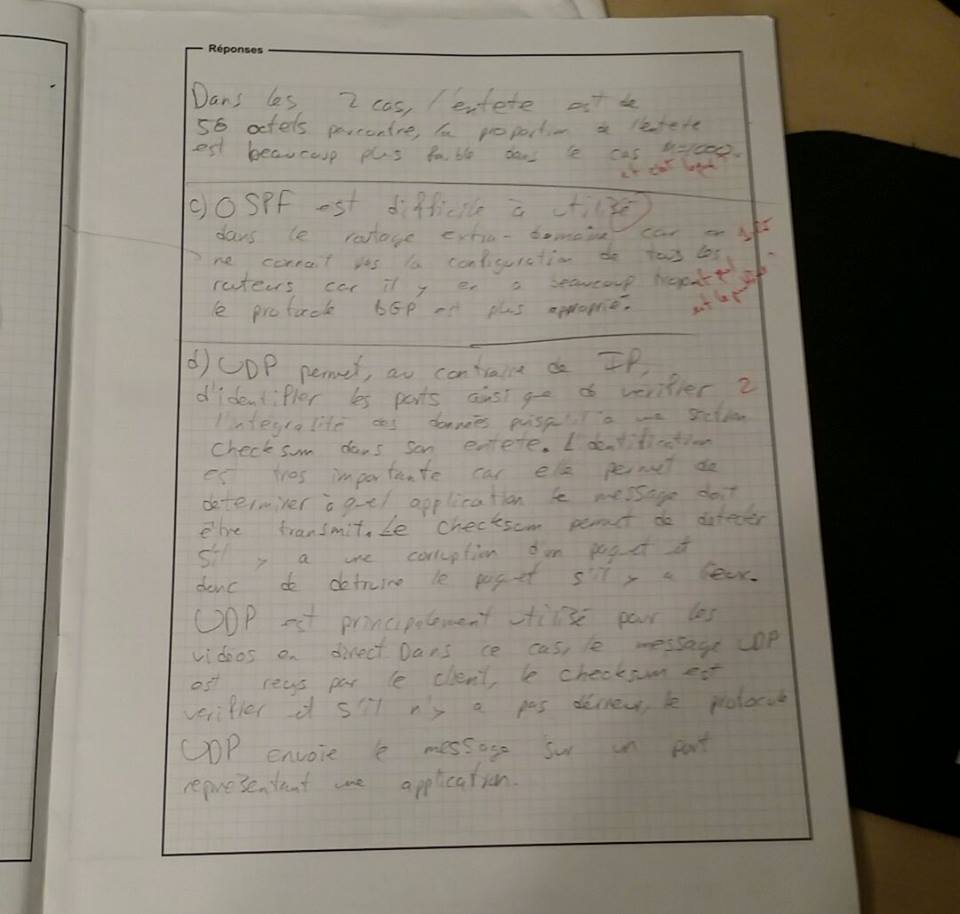 Réponses
Dans les 2 cas, l'entete est de
56 octets parcontre, la proportion de l'entete
est beaucoup plus faible dans le cas M=1000.
et c'est
c) OSPF est difficile à utilisé
dans le routage extra-domaine car on
ne connait pas la configuration de tous les
routeurs car il y en a beaucoup trop
le protocole BGP est plus approprié.
d) UDP permet, au contraire de IP,
d'identifier les ports ainsi que de vérifier 2
l'intégralité des données puisqu'il a une section
checksum dans son entete. L'identification
est tres importante car elle permet de
determiner à quel application le message doit
être transmit. Le checksum permet de détecter
s'il y a une corruption d'un paquet et
donc de detruire le paquet s'il y a lieux.
UDP est principalement utilisé pour les
vidéos en direct Dans ce cas, le message UDP
est reçus par le client, le checksum est
verifier et s'il n'y a pas d'érreur, le protocole
UDP envoie le message sur un port
représentant une application.